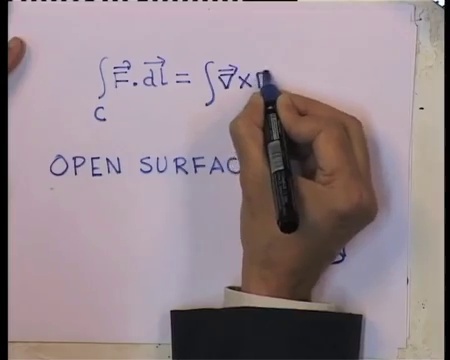 ∫_C F⃗ . d⃗l = ∫ ∇⃗ ×
OPEN SURFAC